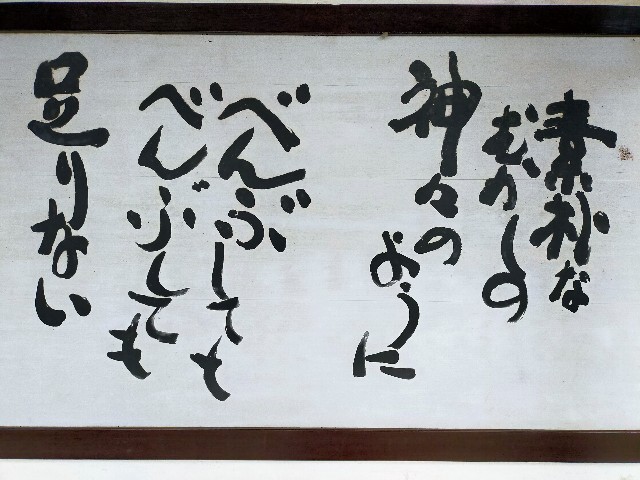 素朴な
むかしの
神々の
ように
べんぶしても
べんぶしても
足りない